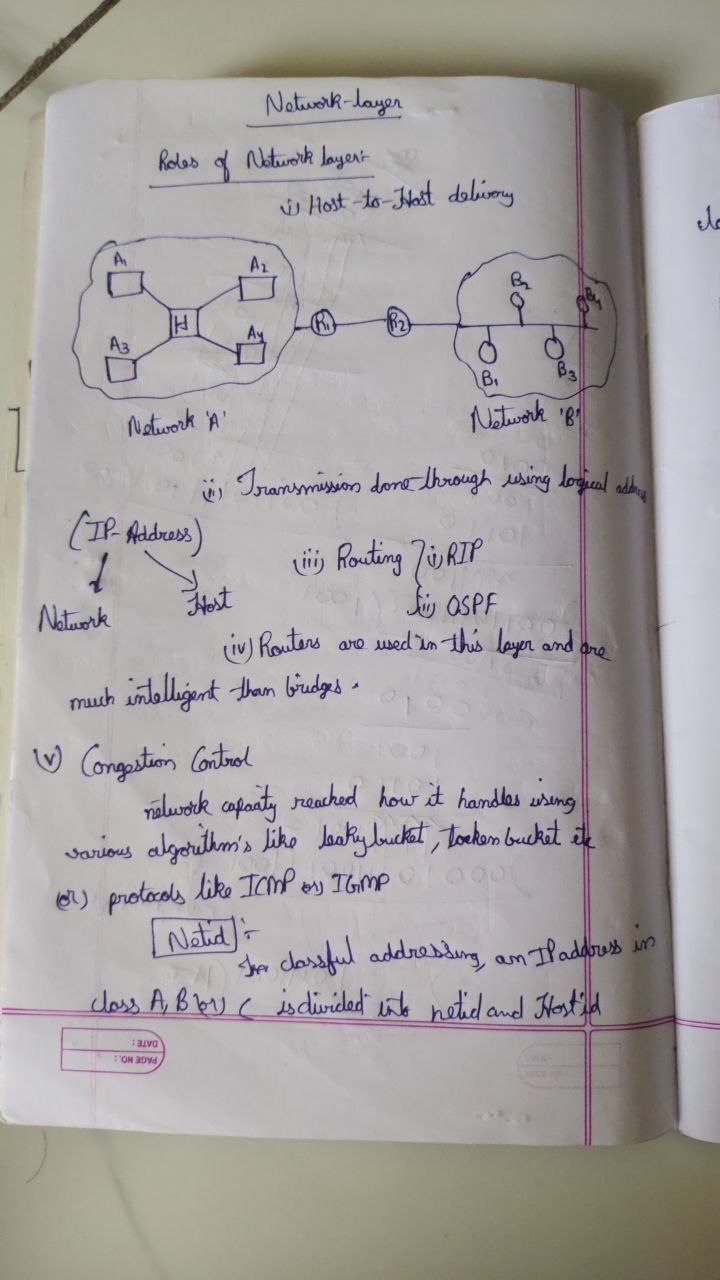 Network-layer
Roles of Network layer:-
(i) Host-to-Host delivery
A1
A2
H
A3
A4
R1
R2
B2
B4
B1
B3
Network 'A'
Network 'B'
(ii) Transmission done through using logical address
(IP-Address)
Network
Host
(iii) Routing
(i) RIP
(ii) OSPF
(iv) Routers are used in this layer and are
much intelligent than bridges.
(v) Congestion Control
network capaaty reached how it handles using
various algorithm's like leaky bucket, tocken bucket etc
(or) protocols like ICMP or) IGMP
Netid :-
In classful addressing, an IP address in
class A, B (or) C is divided into netid and Hostid
PAGE NO.:
DATE: